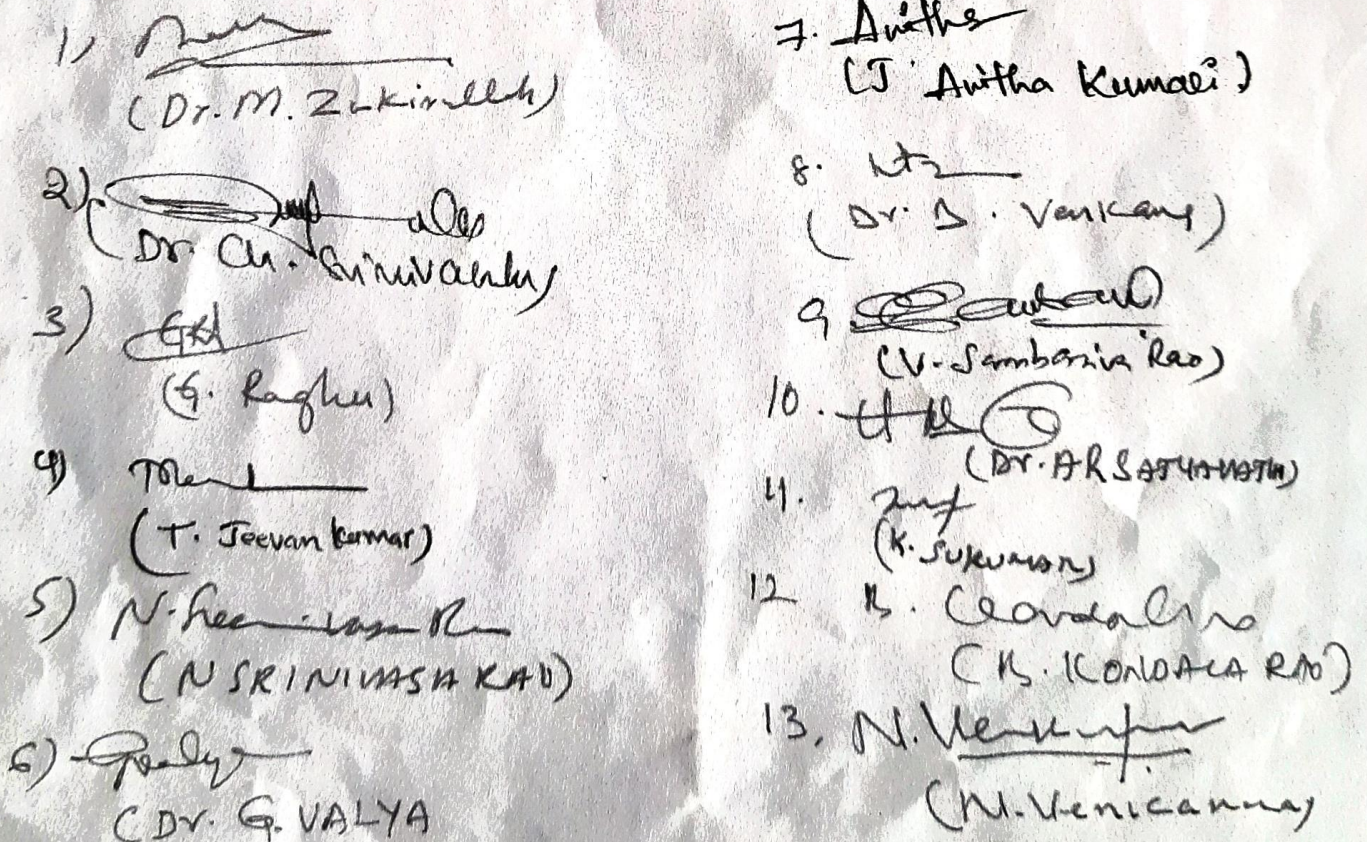 1)
(Dr. M. Zakirullah)
2)
(Dr. Ch. Srinivasulu)
3)
(G. Raghu)
4)
(T. Jeevan Kumar)
5) N. Sreenivasa R
(N SRINIVASA RAO)
6)
(Dr. G. VALYA
7. Anitha
(J Anitha Kumari)
8.
(Dr. B. Venkanna)
9
(V. Sambasiva Rao)
10.
(Dr. A R SATYAVATHI)
11.
(K. SUKUMAR)
12 B.
(B. KONDALA RAO)
13. N. Venkanna
(N. Venkanna)